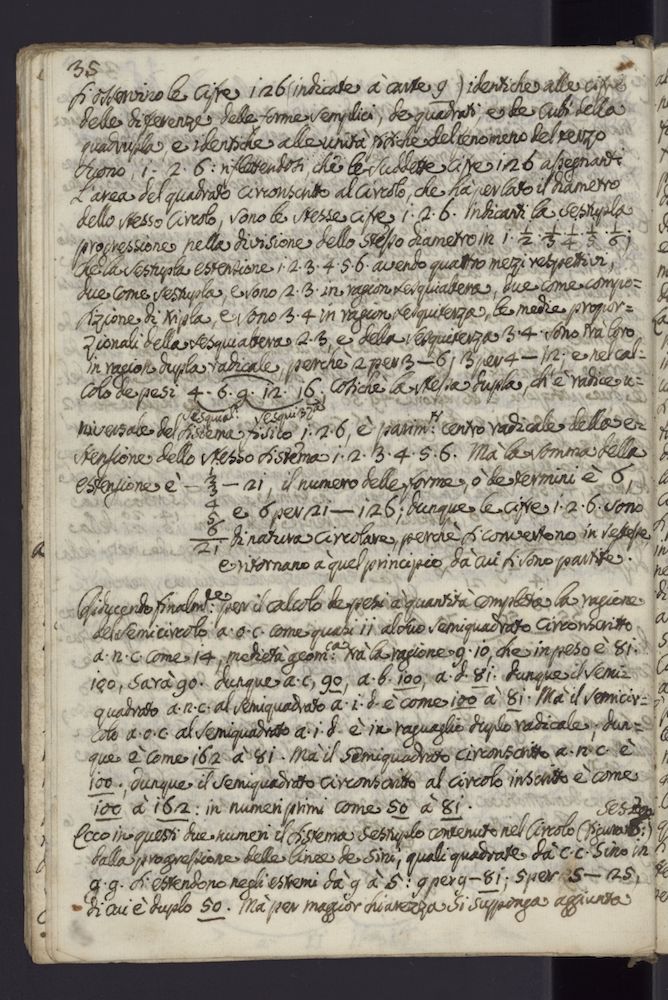 35
si osservino le cifre 126 (indicate à carte 9) identiche alle cifre
delle differenze delle forme semplici, de quadrati e de cubi della
quadrupla, e identiche alle unità fisiche del fenomeno del terzo
suono, 1. 2. 6: riflettendosi, che le suddette cifre 126 assegnanti
l'area del quadrato circonscritto al circolo, che ha per lato il diametro
dello stesso circolo, sono le stesse cifre 1. 2. 6. indicanti la sestupla
progressione nella divisione dello stesso diametro in 1. 1/2. 1/3. 1/4. 1/5. 1/6;
che la sestupla estensione 1. 2. 3. 4. 5. 6 avendo quattro mezzi respettivi,
due come sestupla, e sono 2. 3. in ragion sesquialtera, due come compo=
sizione di tripla, e sono 3. 4 in ragion sesquiterza, le medie propor=
zionali della sesquialtera 2. 3, e della sesquiterza 3. 4. sono trà loro
in ragion dupla radicale, perchè 2 per 3 — 6; 3 per 4 — 12: e nel cal=
colo de pesi 4. 6. 9. 12. 16, cosiche la stessa dupla, ch'è radice u=
sesquial: sesquiterza
niversale del sistema fisico 1. 2. 6, è parim.te centro radicale della e=
stensione dello stesso sistema 1. 2. 3. 4. 5. 6. Mà la somma della
estensione è — 1 2 3 — 21, il numero delle forme, ò de termini è 6,
4 5 e 6 per 21 — 126; dunque le cifre 1. 2. 6. sono
6 di natura circolare, perchè si convertono in se stesse
21 e ritornano à quel principio, dà cui si sono partite.
Riducendo finalm.te per il calcolo de pesi à quantità completa la ragione
del semicircolo a. o. c. come quasi 11 al suo semiquadrato circonscritto
a. n. c. come 14, medietà geom.ca trà la ragione 9. 10, che in peso è 81.
100, sarà 90. dunque a. c, 90, a. b. 100, a. d. 81. dunque il semi=
quadrato a. n. c. al semiquadrato a. i. d. è come 100 à 81. Mà il semicir=
colo a. o. c. al semiquadrato a. i. d. è in ragguaglio duplo radicale, dun=
que è come 162 à 81. Mà il semiquadrato circonscritto a. n. c. è
100. dunque il semiquadrato circonscritto al circolo inscritto è come
100 à 162: in numeri primi come 50 à 81.
Ecco in questi due numeri il sistema sestuplo contenuto nel circolo (figura 6:)
dalla progressione delle linee de sini, quali quadrate dà c. c. sino in
g. g. si estendono negli estremi dà 9 à 5: 9 per 9 — 81; 5 per 5 — 25,
di cui è duplo 50. Mà per maggior chiarezza si supponga aggiunta